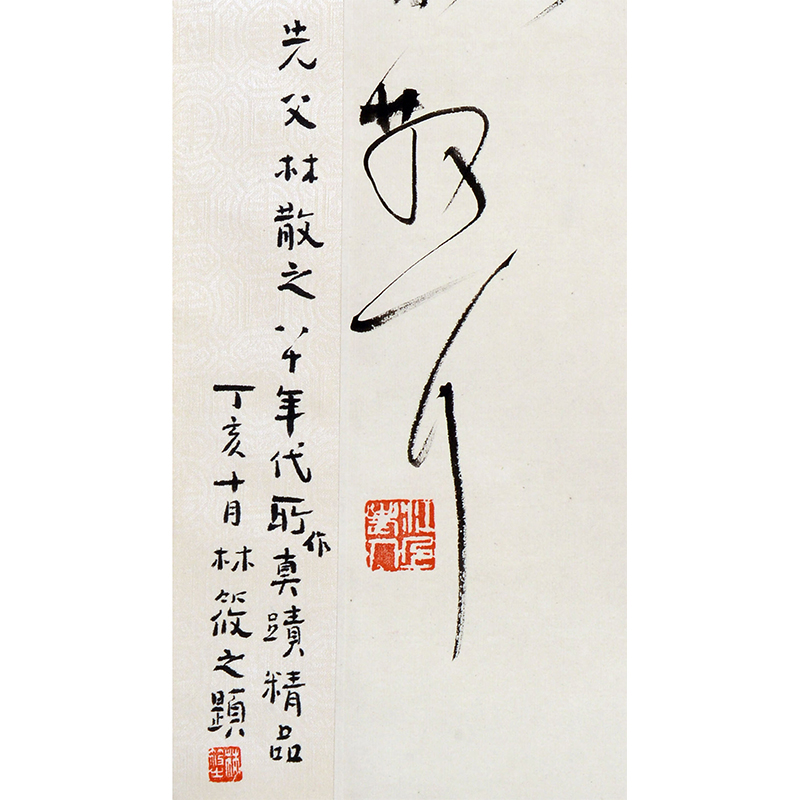 散耳
先父林散之八十年代所作真蹟精品
丁亥十月林筱之題